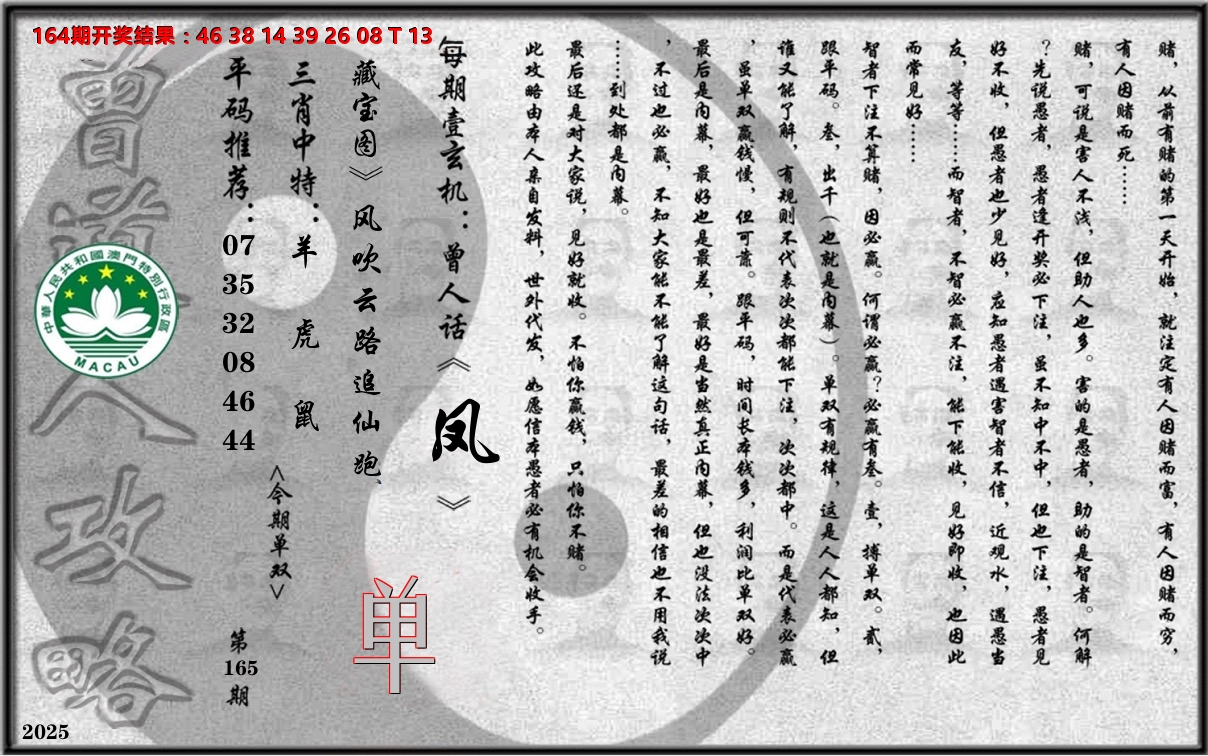 164期开奖结果：46 38 14 39 26 08 T 13
赌，从前有赌的第一天开始，就注定有人因赌而富，有人因赌而穷，
有人因赌而死……
赌，可说是害人不浅，但助人也多。害的是愚者，助的是智者。何解
？先说愚者，愚者逢开奖必下注，虽不知中不中，但也下注，愚者见
好不收，但愚者也少见好，应知愚者遇害智者不信，近观水，遇愚当
友，等等……而智者，不智必赢不注，能下能收，见好即收，也因此
而常见好……
智者下注不算赌，因必赢。何谓必赢？必赢有叁。壹，搏单双。贰，
跟平码。叁，出千（也就是内幕）。单双有规律，这是人人都知，但
谁又能了解，有规则不代表次次都能下注，次次都中。而是代表必赢
，虽单双赢钱慢，但可靠。跟平码，时间长本钱多，利润比单双好。
最后是内幕，最好也是最差，最好是当然真正内幕，但也没法次次中
，不过也必赢，不知大家能不能了解这句话，最差的相信也不用我说
……到处都是内幕。
最后还是对大家说，见好就收。不怕你赢钱，只怕你不赌。
此攻略由本人亲自发料，世外代发，如愿信本愚者必有机会收手。
每期壹玄机：曾人话《凤》
藏宝图》风吹云路追仙跑、
单
三肖中特：羊 虎 鼠
<今期单双>
平码推荐：07 35 32 08 46 44
第165期
曾道人攻略
中華人民共和國澳門特別行政區
MACAU
2025